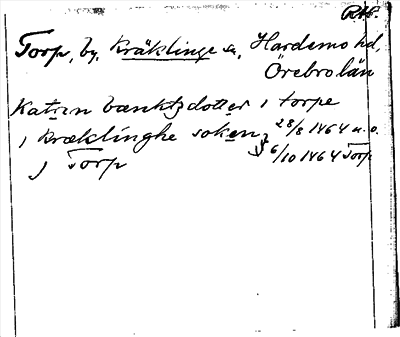 R.H.
Torp, by, Kräklinge sn, Hardemo hd,
Örebro län
Katrın bænktz dotter ı torpe
ı Kræklinghe soken, 28/8 1464 n. o.
J Torp 6/10 1464 Torp